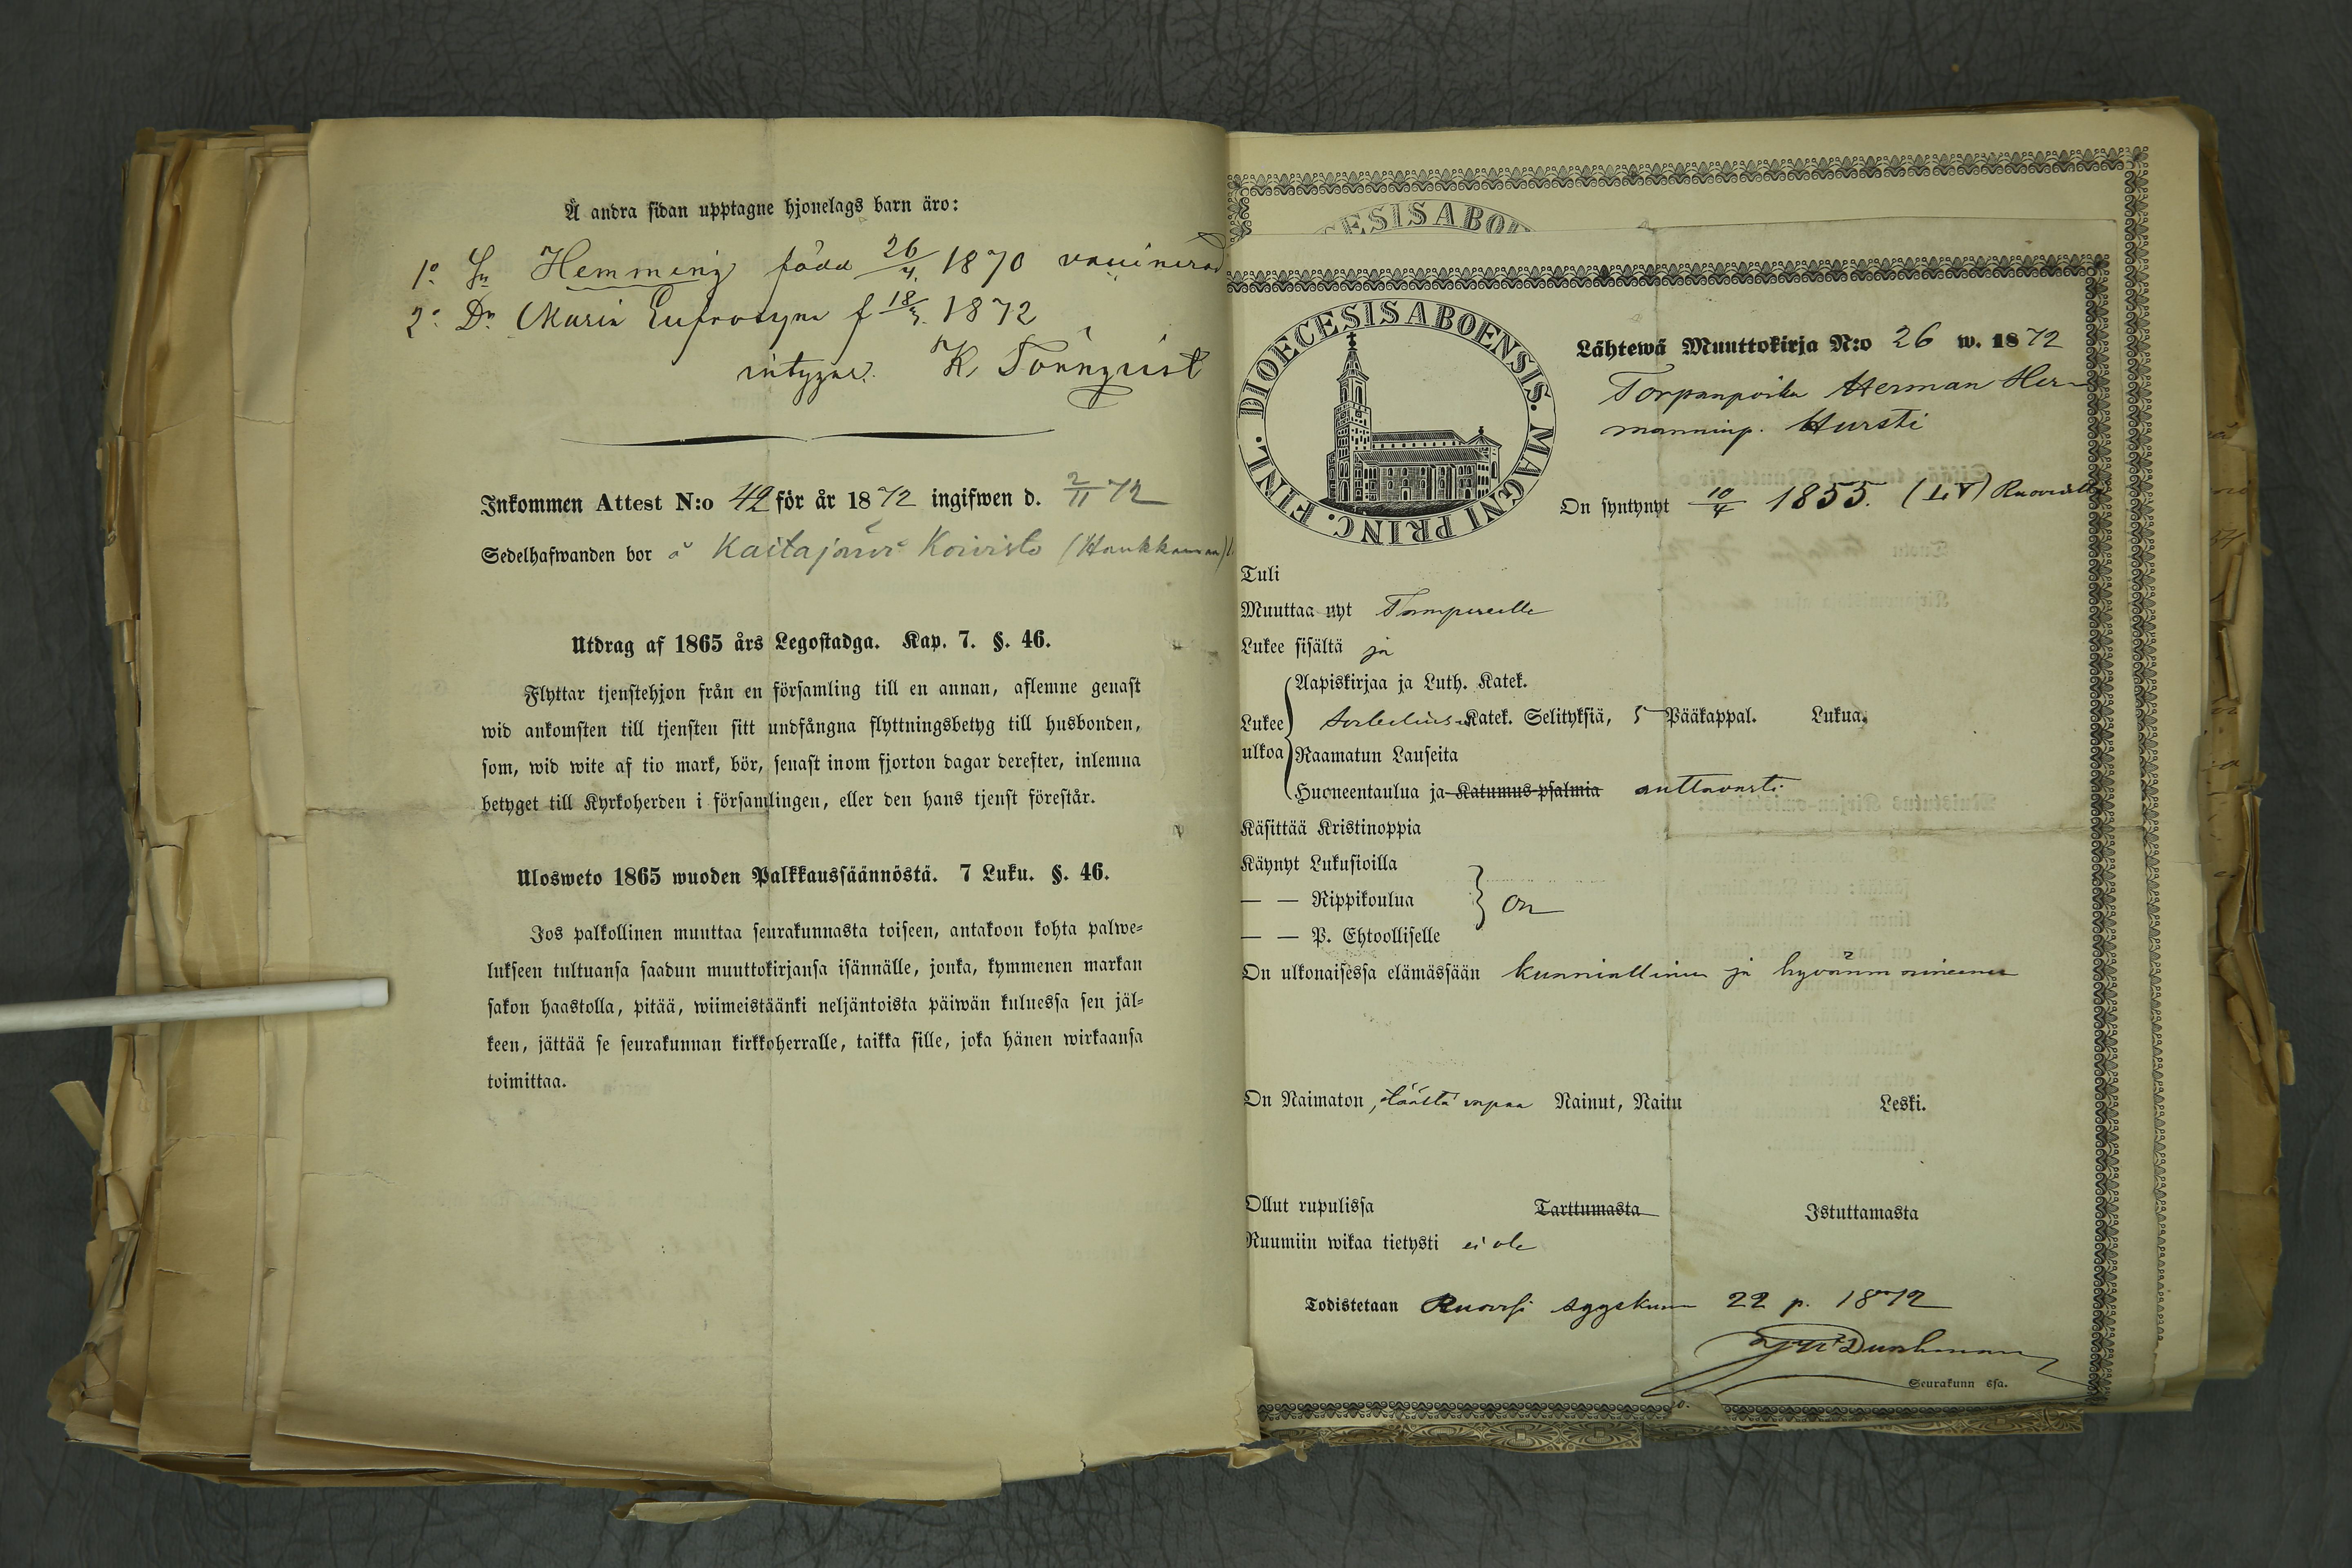 Å andra sidan upptagne hjonelags barn äro:
1o Sn Hemming född 26/4 1870 vaccinerad
2o Dr Maria Eufrosyna f 18/3 1872
intygar. K. Törnqvist
Inkommen Attest N:o 42 för år 1872 ingifwen d. 2/11 72
Sedelhafwanden bor å Kaitajärvi Koivisto
Utdrag af 1865 års Legostadga. Kap. 7. §. 46.
Flyttar tjenstehjon från en församling till en annan, aflemne genast
wid ankomsten till tjensten sitt undfångna flyttningsbetyg till husbonden,
som, wid wite af tio mark, bör, senast inom fjorton dagar derefter, inlemna
betyget till Kyrkoherden i församlingen, eller den hans tjenst förestår.
Ulosweto 1865 wuoden Palkkaussäännöstä. 7 Luku. §. 46.
Jos palkollinen muuttaa seurakunnasta toiseen, antakoon kohta palwe-
lukseen tultuansa saadun muuttokirjansa isännälle, jonka, kymmenen markan
sakon haastolla, pitää, wiimeistäänki neljäntoista päiwän kuluessa sen jäl-
keen, jättää se seurakunnan kirkkoherralle, taikka sille, joka hänen wirkaansa
toimittaa.
ESIS ABO
DIOECESIS ABOENSIS. MAGNI PRINC. FINL.
Lähtewä Muuttokirja N:o 26 w. 1872
Torpanpoika Herman Her-
manninp. Hursti
On syntynyt 10/4 1855. Ruovedellä
Tuli
Muuttaa nyt Tampereelle
Lukee sisältä ja
Aapiskirjaa ja Luth. Katek.
Lukee ulkoa
Sorbeliusen Katek. Selityksiä, 5 Pääkappal. Lukua.
Raamatun Lauseita
Huoneentaulua ja Katumus-psalmia auttavasti
Käsittää Kristinoppia
Käynyt Lukusioilla
— — Rippikoulua } on
— — P. Ehtoolliselle
On ulkonaisessa elämässään kunniallinen ja hyvänmaineinen
On Naimaton, säästä vapaa Nainut, Naitu Leski.
Ollut rupulissa Tarttumasta Istuttamasta
Ruumiin wikaa tietysti ei ole
Todistetaan Ruovesi syyskuun 22 p. 1872
Seurakunn ssa.